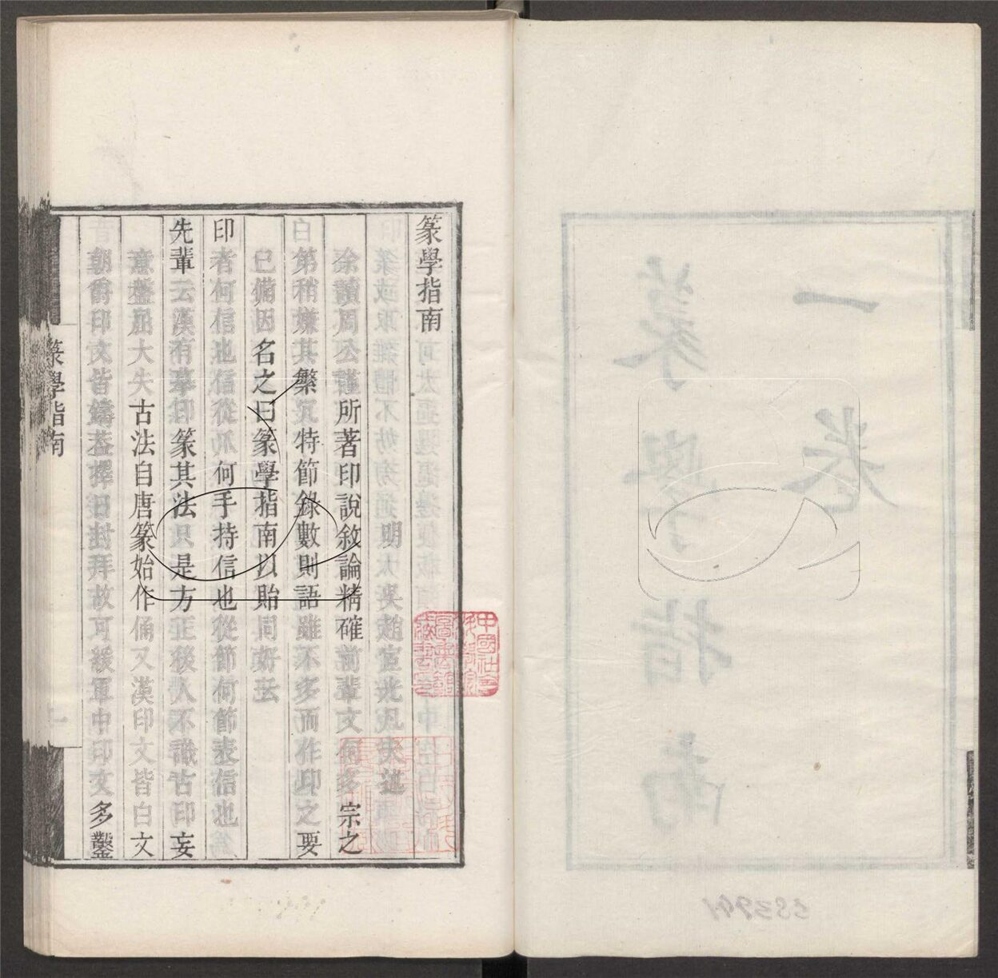 篆學指南
明 太末趙宧光凡夫述
余讀周公謹所著印說敘論精確前輩文何多宗之
第稍嫌其繁冗特節錄數則語雖不多而作印之要
已備因名之曰篆學指南以貽同好云
印者何信也信從爪何手持信也從節何節表信也
先輩云漢有摹印篆其法只是方正後人不識古印妄
意盤屈大失古法自唐篆始作俑又漢印文皆白文
朝爵印文皆鑄蓋擇日封拜故可緩軍中印文多鑿
篆學指南
一
一卷
篆學指南